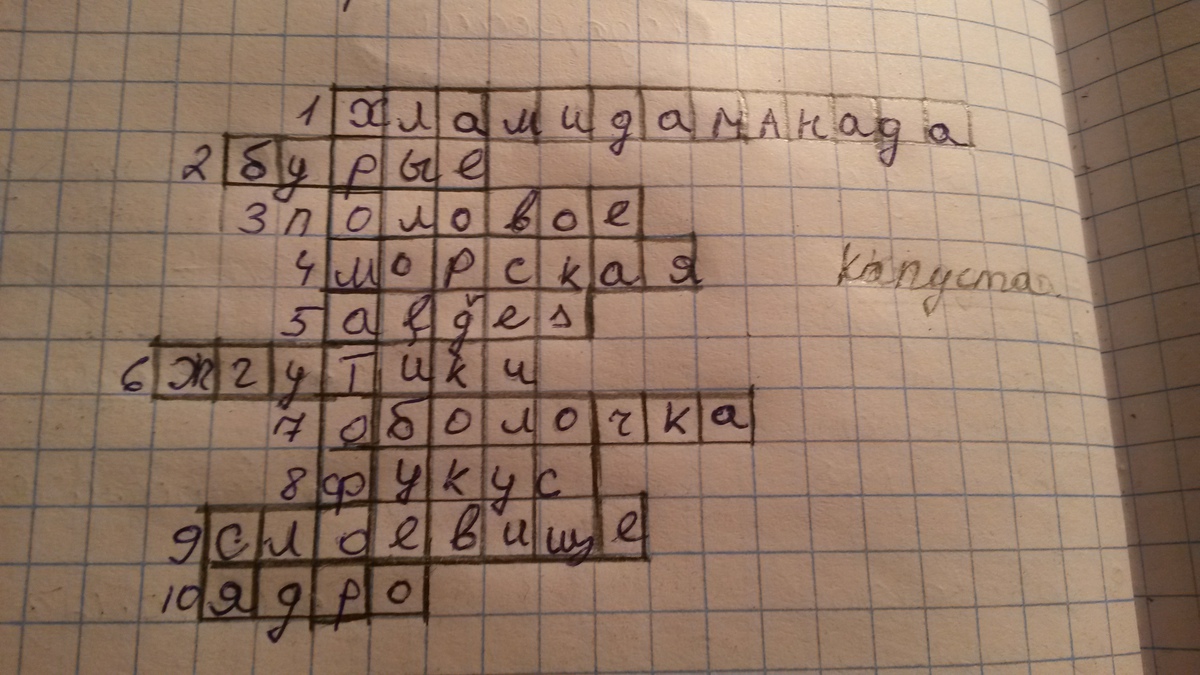 1 хламидаманада
2 бурые
3 половое
4 морская капуста
6 жгутики
7 оболочка
8 фукус
9 слоевище
10 ядро